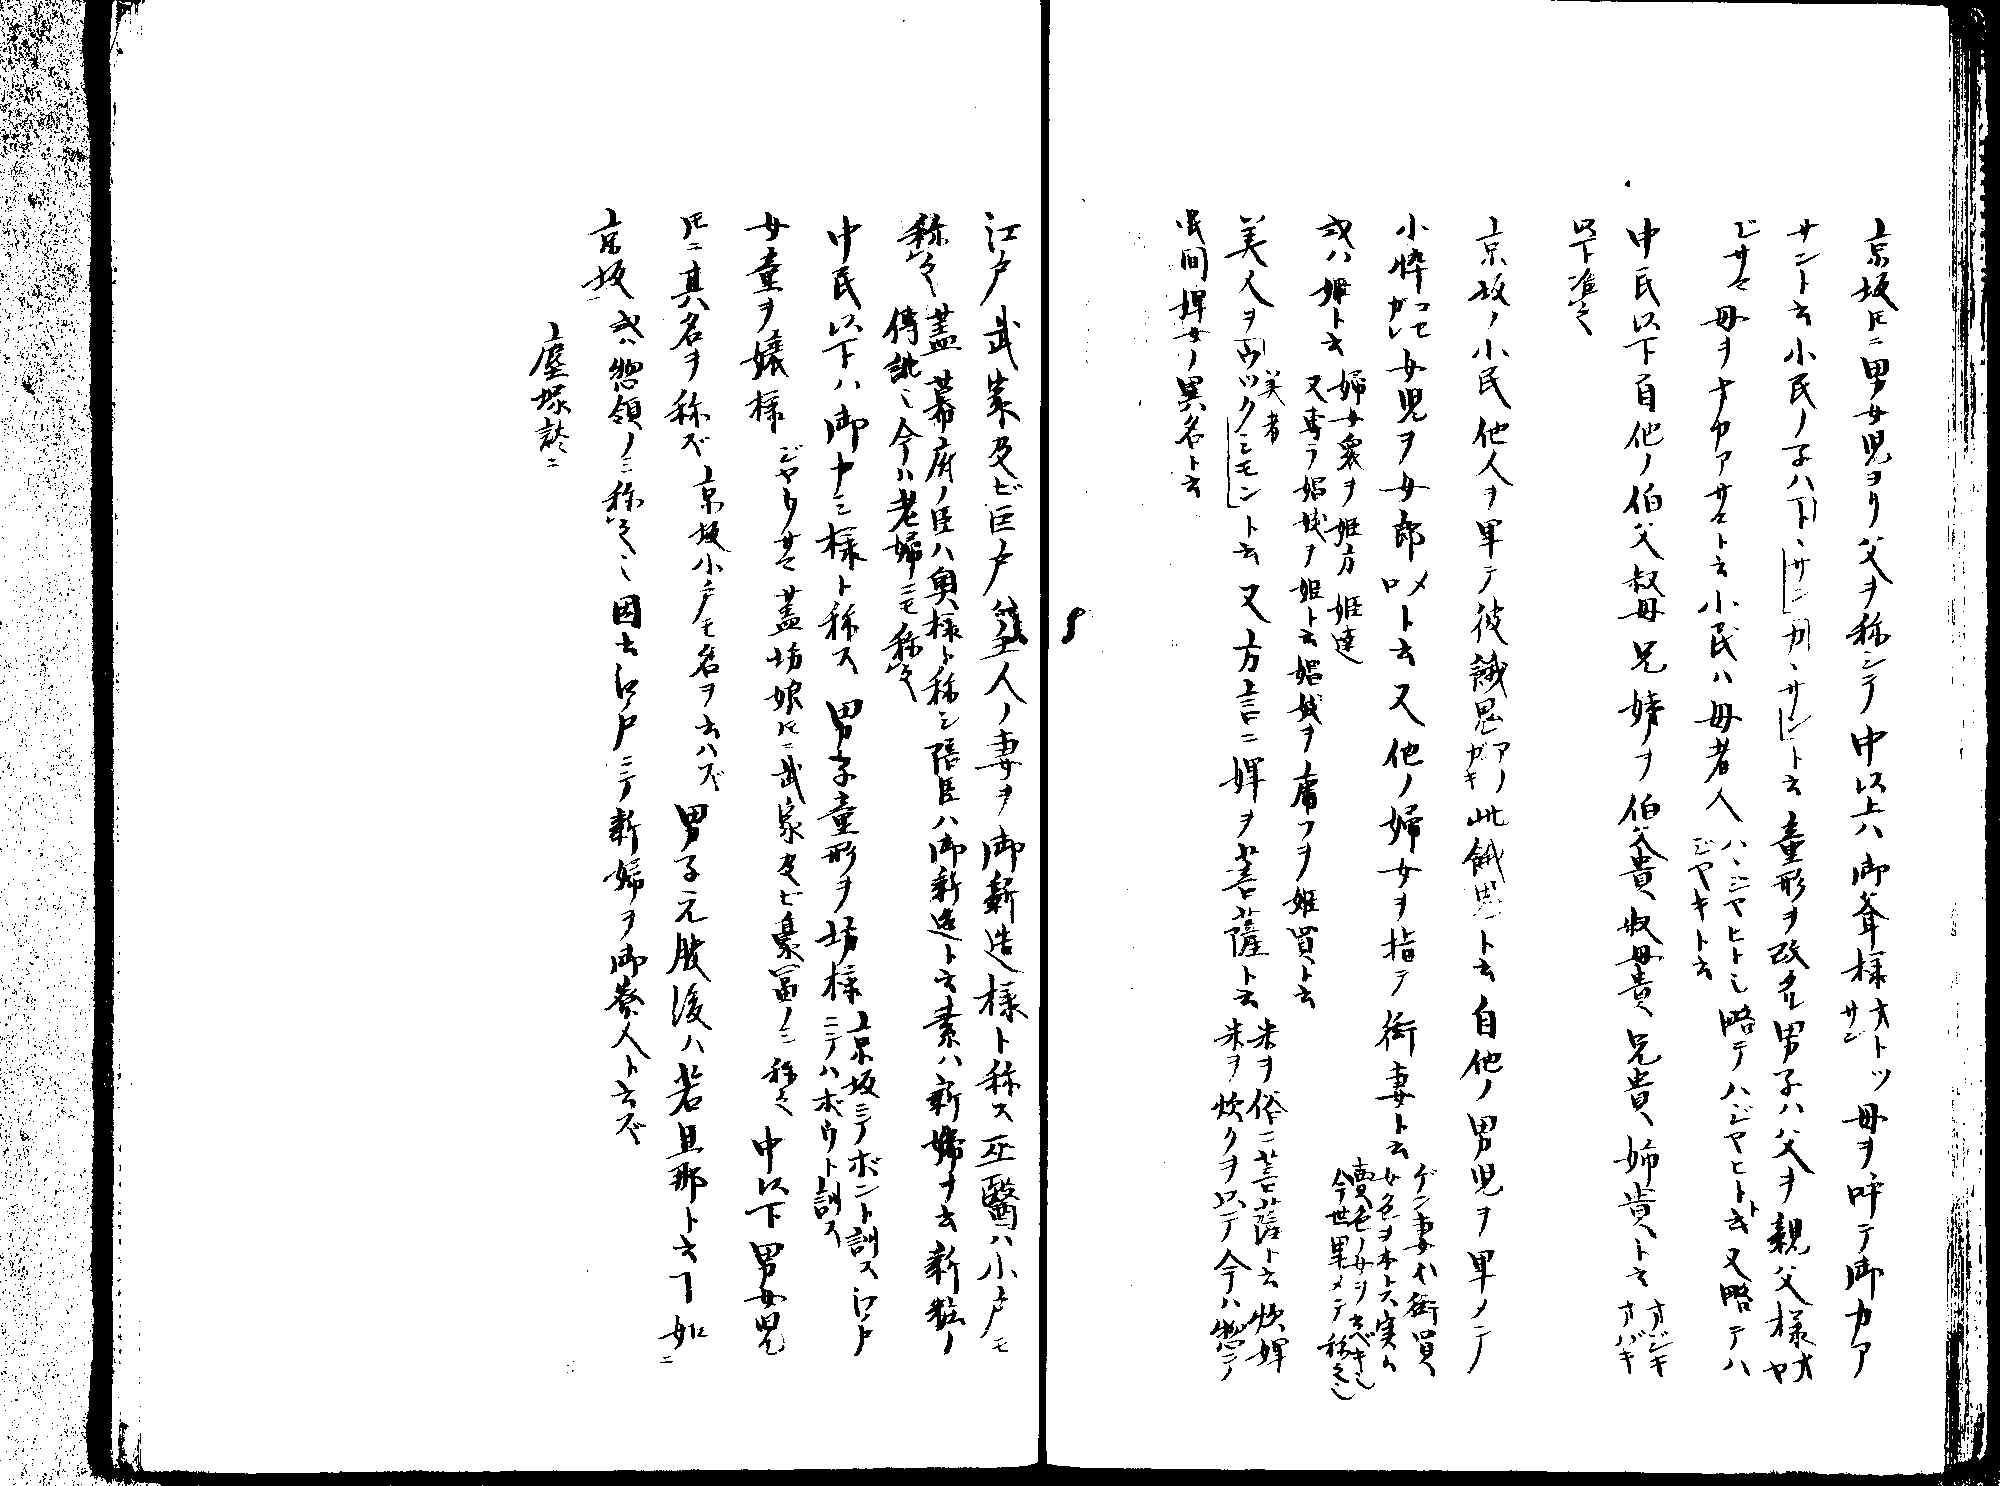 京坂ﾄﾓニ男女児ヨリ父ヲ称シテ中以上ハ御爺様オトッサン母ヲ呼テ御カア
サント云小民ノ子ハトヽサンカヽサント云童形ヲ改タル男子ハ父ヲ親父様オヤ
ジサマ母ヲオカアサマト云小民ハ母者人ハヽジヤヒトシ略テハジヤヒトト云又略テハ
ジヤキト云
中民以下自他ノ伯父叔母兄姉ヲ伯父貴、叔母貴、兄貴、姉貴ト云オジキオバキ
以下准之
京坂ノ小民他人ヲ卑テ彼餓鬼アノガキ此餓鬼ト云自他ノ男児ヲ卑メテ
小悴コセガレ女児ヲ女郎メロト云又他ノ婦女ヲ指テ衒妻ト云ゲン妻ハ衒買、
女色ヲ本トス実ハ
賣色ノ女ヲ云ベキ也
今世卑メテ称之也
或ハ姫ト云婦女衆ヲ姫方姫達
又専ラ娼妓ヲ姫ト云娼妓ヲ買フヲ姫買ト云
美人ヲウツクシモン美者ト云又方言ニ婢ヲ菩薩ト云米ヲ俗ニ菩薩ト云炊婢
米ヲ炊クヲ以テ今ハ惣テ
民間婢女ノ異名ト云
江戸武家及ビ巨戸ノ主人ノ妻ヲ御新造様ト称ス巫醫ハ小戸モ
称之蓋幕府ノ臣ハ奥様ト称シ陪臣ハ御新造ト云素ハ新婦ヲ云新粧ノ
傳訛也今ハ老婦ニモ称之
中民以下ハ御カミ様ト称ス男子童形ヲ坊様京坂ニテボント訓ス江戸
ニテハボウト訓ス
女童ヲ嬢様ジヤウサマ蓋坊娘ﾄﾓニ武家及ビ豪富ノミ称之中以下男女児
ﾄﾓニ其名ヲ称ス京坂小戸モ名ヲ云ハズ男子元服後ハ若旦那ト云ヿ如ニ
京坂或ハ惣領ノミ称之也因云江戸ニテ新婦ヲ御寮人ト云ズ
塵塚談ニ